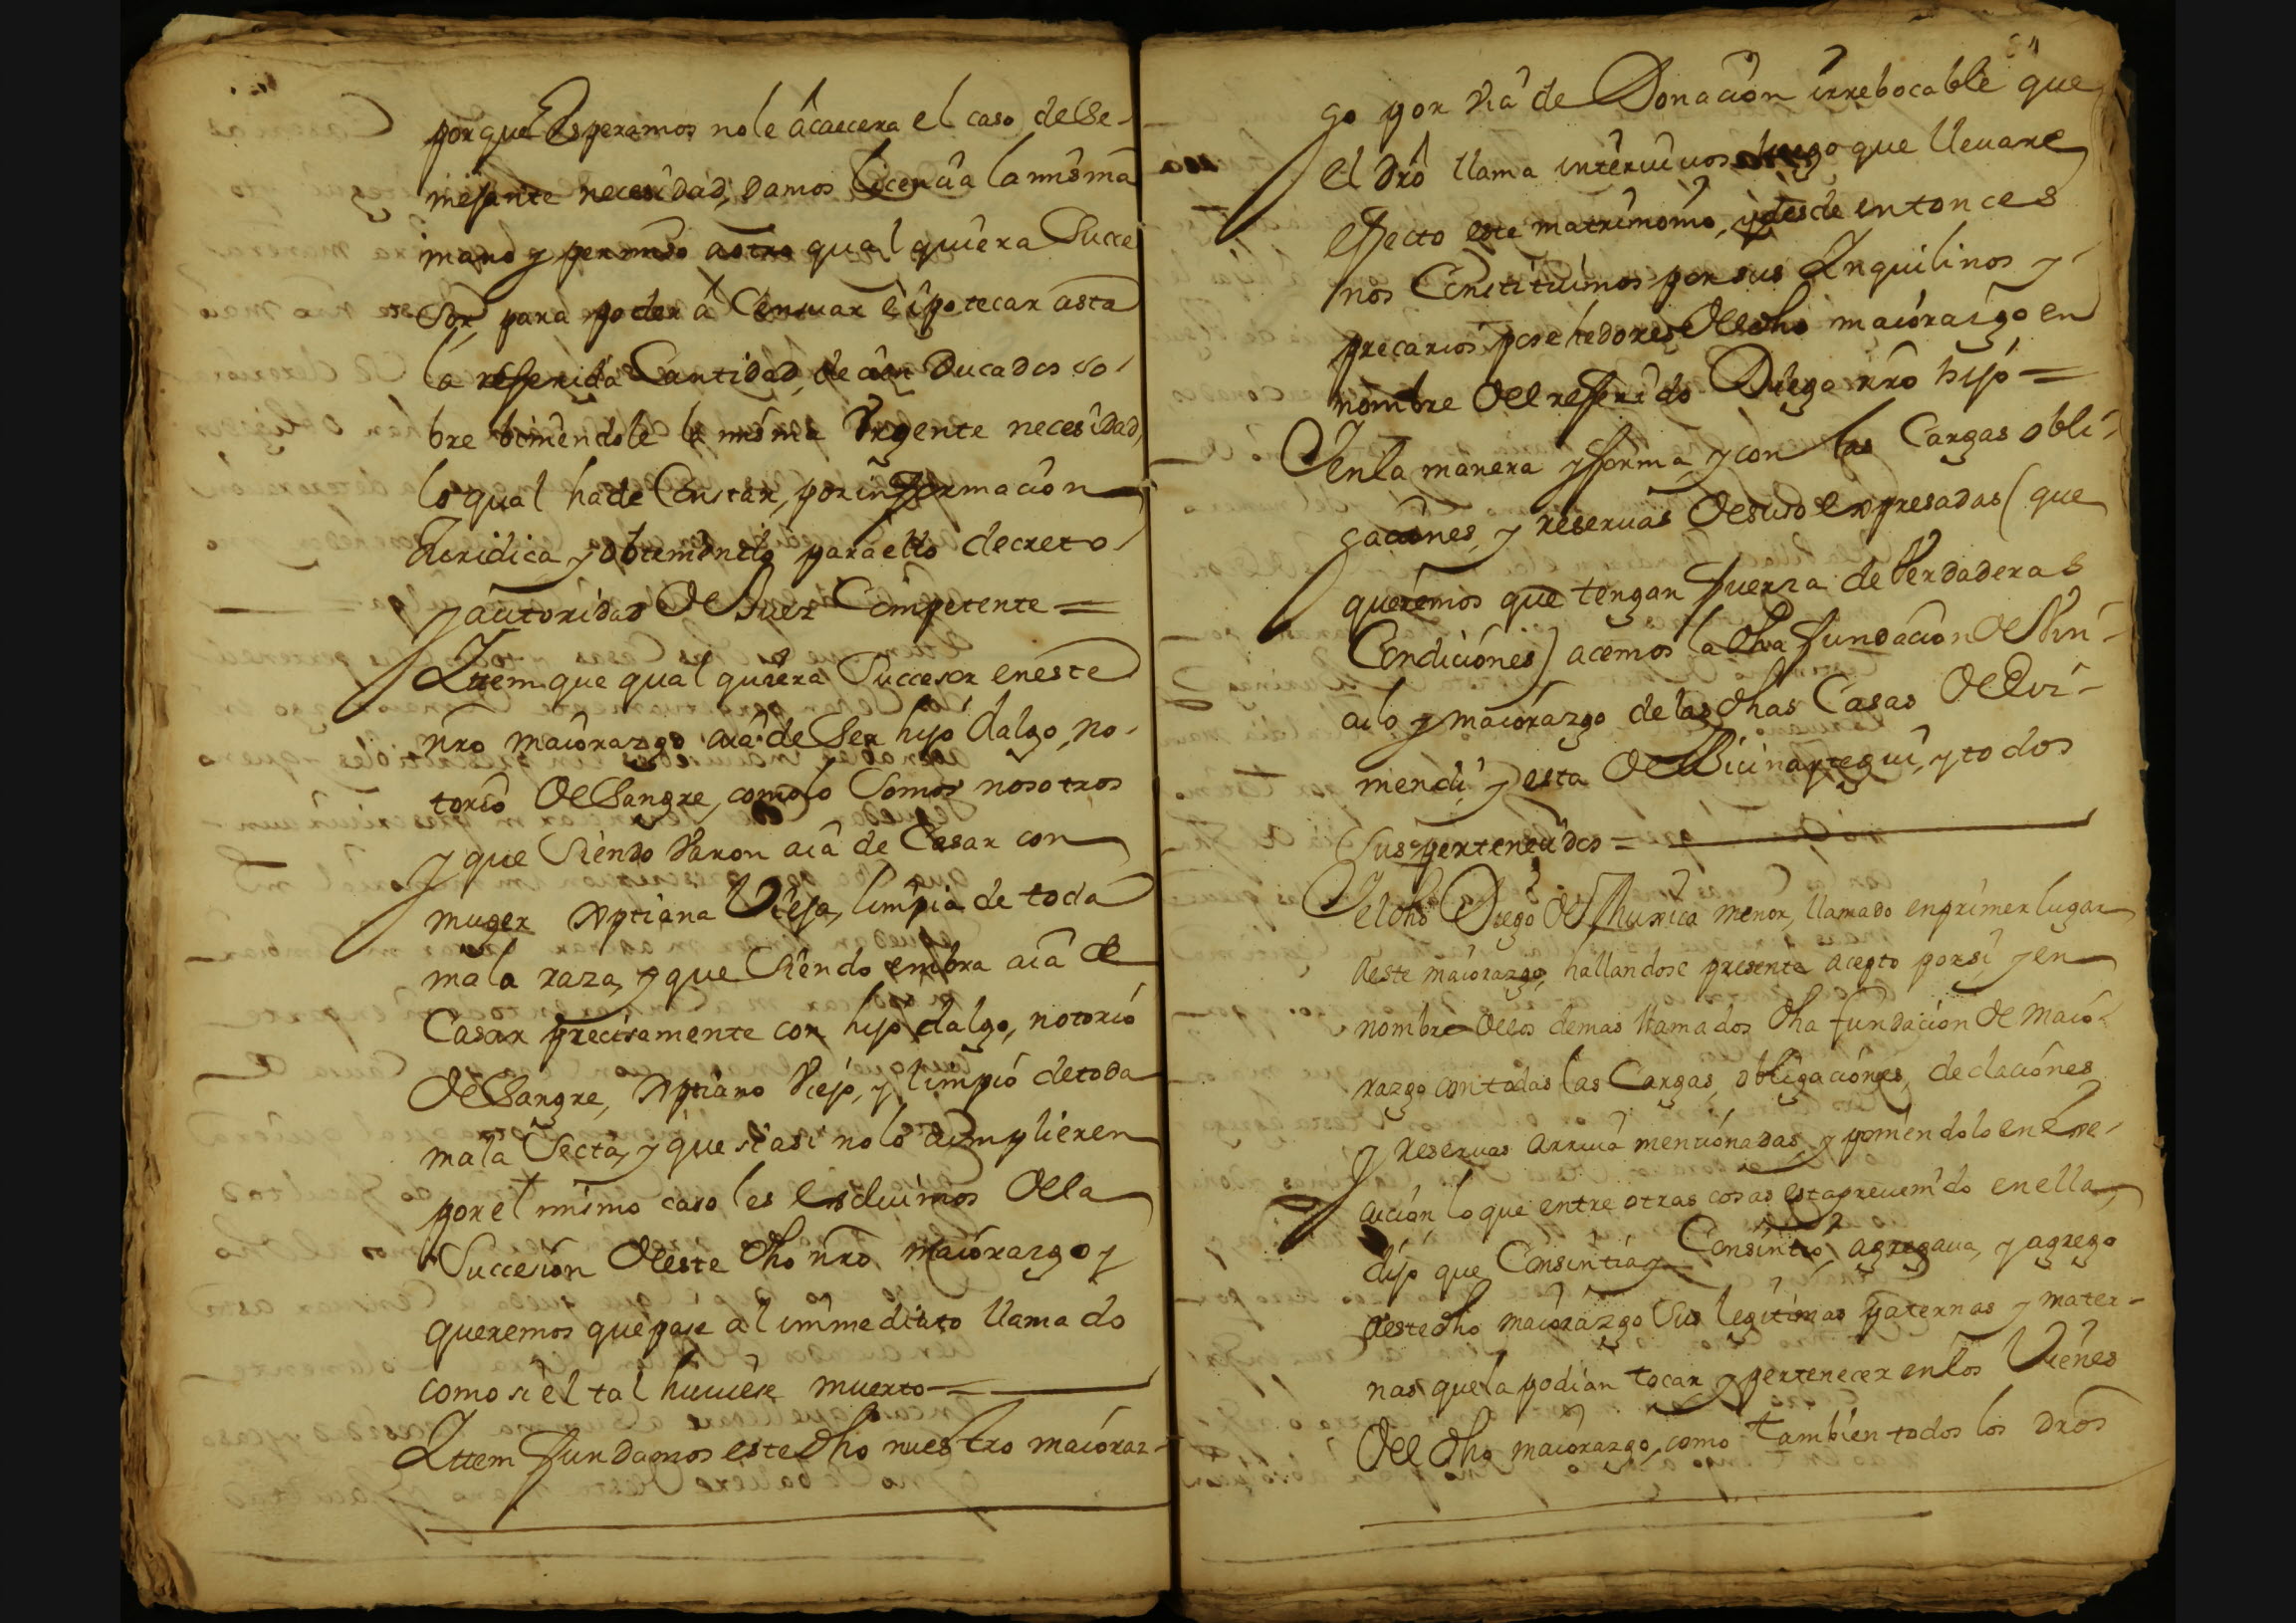 porque Esperamos no le acaecera el caso de Se-
mejante necesidad, damos licencia la misma
mano y permiso a otro qualquiera Succe
sor para poder â Censuar è ipotecar asta
la referida Cantidad, de cien Ducados so-
bre biniendole la misma Urgente necesidad,
lo qual ha de Constar, por informacion
Juridica y obteniendo para ello decreto
y autoridad de Juez Competente =
Ittem que qual quiera Succesor en este
nrô maiorazgo aiâ de Ser hijo dalgo, no-
torio de Sangre, como lo Somos nosotros
y que Siendo Varon aiâ de Casar con
muger Xptiana Vieja, limpia de toda
mala raza, y que Siendo embra aiâ de
Casar precisamente con hijo dalgo, notorio
de Sangre, Xptiano Viejo, y limpio de toda
mala Secta, y que si asi no lo cumplieren
por el mismo caso les Escluimos de la
Succesion de este dho nrô maiorazgo y
queremos que pase al immediato llamado
como si el tal huuiese muerto =
Ittem fundamos este dho nuestro maioraz-
go por via de Donacion irrebocable que
el drô llama intervivos luego que lleuare
efecto este matrimonio, y desde entonces
nos Constituimos por sus Inquilinos y
precarios posehedores de dho maiorazgo en
nombre del referido Diego nrô hijo =
Y en la manera y forma, y con las Cargas obli-
gaciones, y reseruas de suso expresadas (que
queremos que tengan fuerza de Verdaderas
Condiciones) acemos la dha fundacion de Vin-
culo y maiorazgo de las dhas Casas de
mendi, y esta de y todos
Sus pertenecidos =
Y el dho Diego de menor, llamado en primer lugar
a este maiorazgo, hallandose presente acepto por si y en
nombre de los demas llamados dha fundacion de maio-
razgo con todas las Cargas, obligaciones, declaciones
y Reseruas arriua mencionadas, y poniendolo en Exe-
cucion lo que entre otras cosas esta preuenido en ella,
dijo que Consintia y Consintio, agregaua, y agrego
a este dho maiorazgo Sus legitimas paternas y mater-
nas que la podian tocar y pertenecer en los Vienes
del dho maiorazgo, como tambien todos los dros